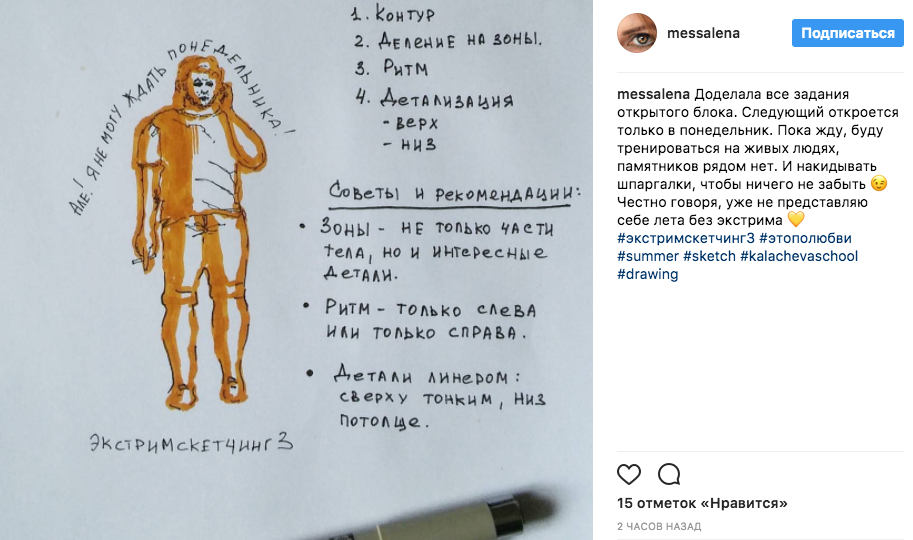 Але! Я не могу ждать понедельника!
1. Контур
2. Деление на зоны.
3. Ритм
4. Детализация
- верх
- низ
Советы и рекомендации:
• Зоны - не только части
тела, но и интересные
детали.
• Ритм - только слева
или только справа.
• Детали линером:
сверху тонким, низ
потолще.
Экстримскетчинг 3
messalena
Подписаться
messalena Доделала все задания
открытого блока. Следующий откроется
только в понедельник. Пока жду, буду
тренироваться на живых людях,
памятников рядом нет. И накидывать
шпаргалки, чтобы ничего не забыть 😉
Честно говоря, уже не представляю
себе лета без экстрима 💛
#экстримскетчинг3 #этополюбви
#summer #sketch #kalachevaschool
#drawing
15 отметок «Нравится»
2 ЧАСОВ НАЗАД